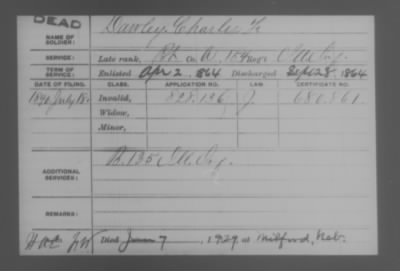 DEAD
NAME OF SOLDIER: Dawley, Charles F.
SERVICE: Late rank, Pvt Co. A, 184 Reg't O. Inf.
TERM OF SERVICE: Enlisted Apr 2, 1864 Discharged Sept 28, 1864
DATE OF FILING. CLASS. APPLICATION NO. LAW CERTIFICATE NO.
1890 July 18 Invalid, 828.126 J 680.861
Widow,
Minor,
ADDITIONAL SERVICES: A. 135
REMARKS:
Died 7, 1929 at Milford, Neb.